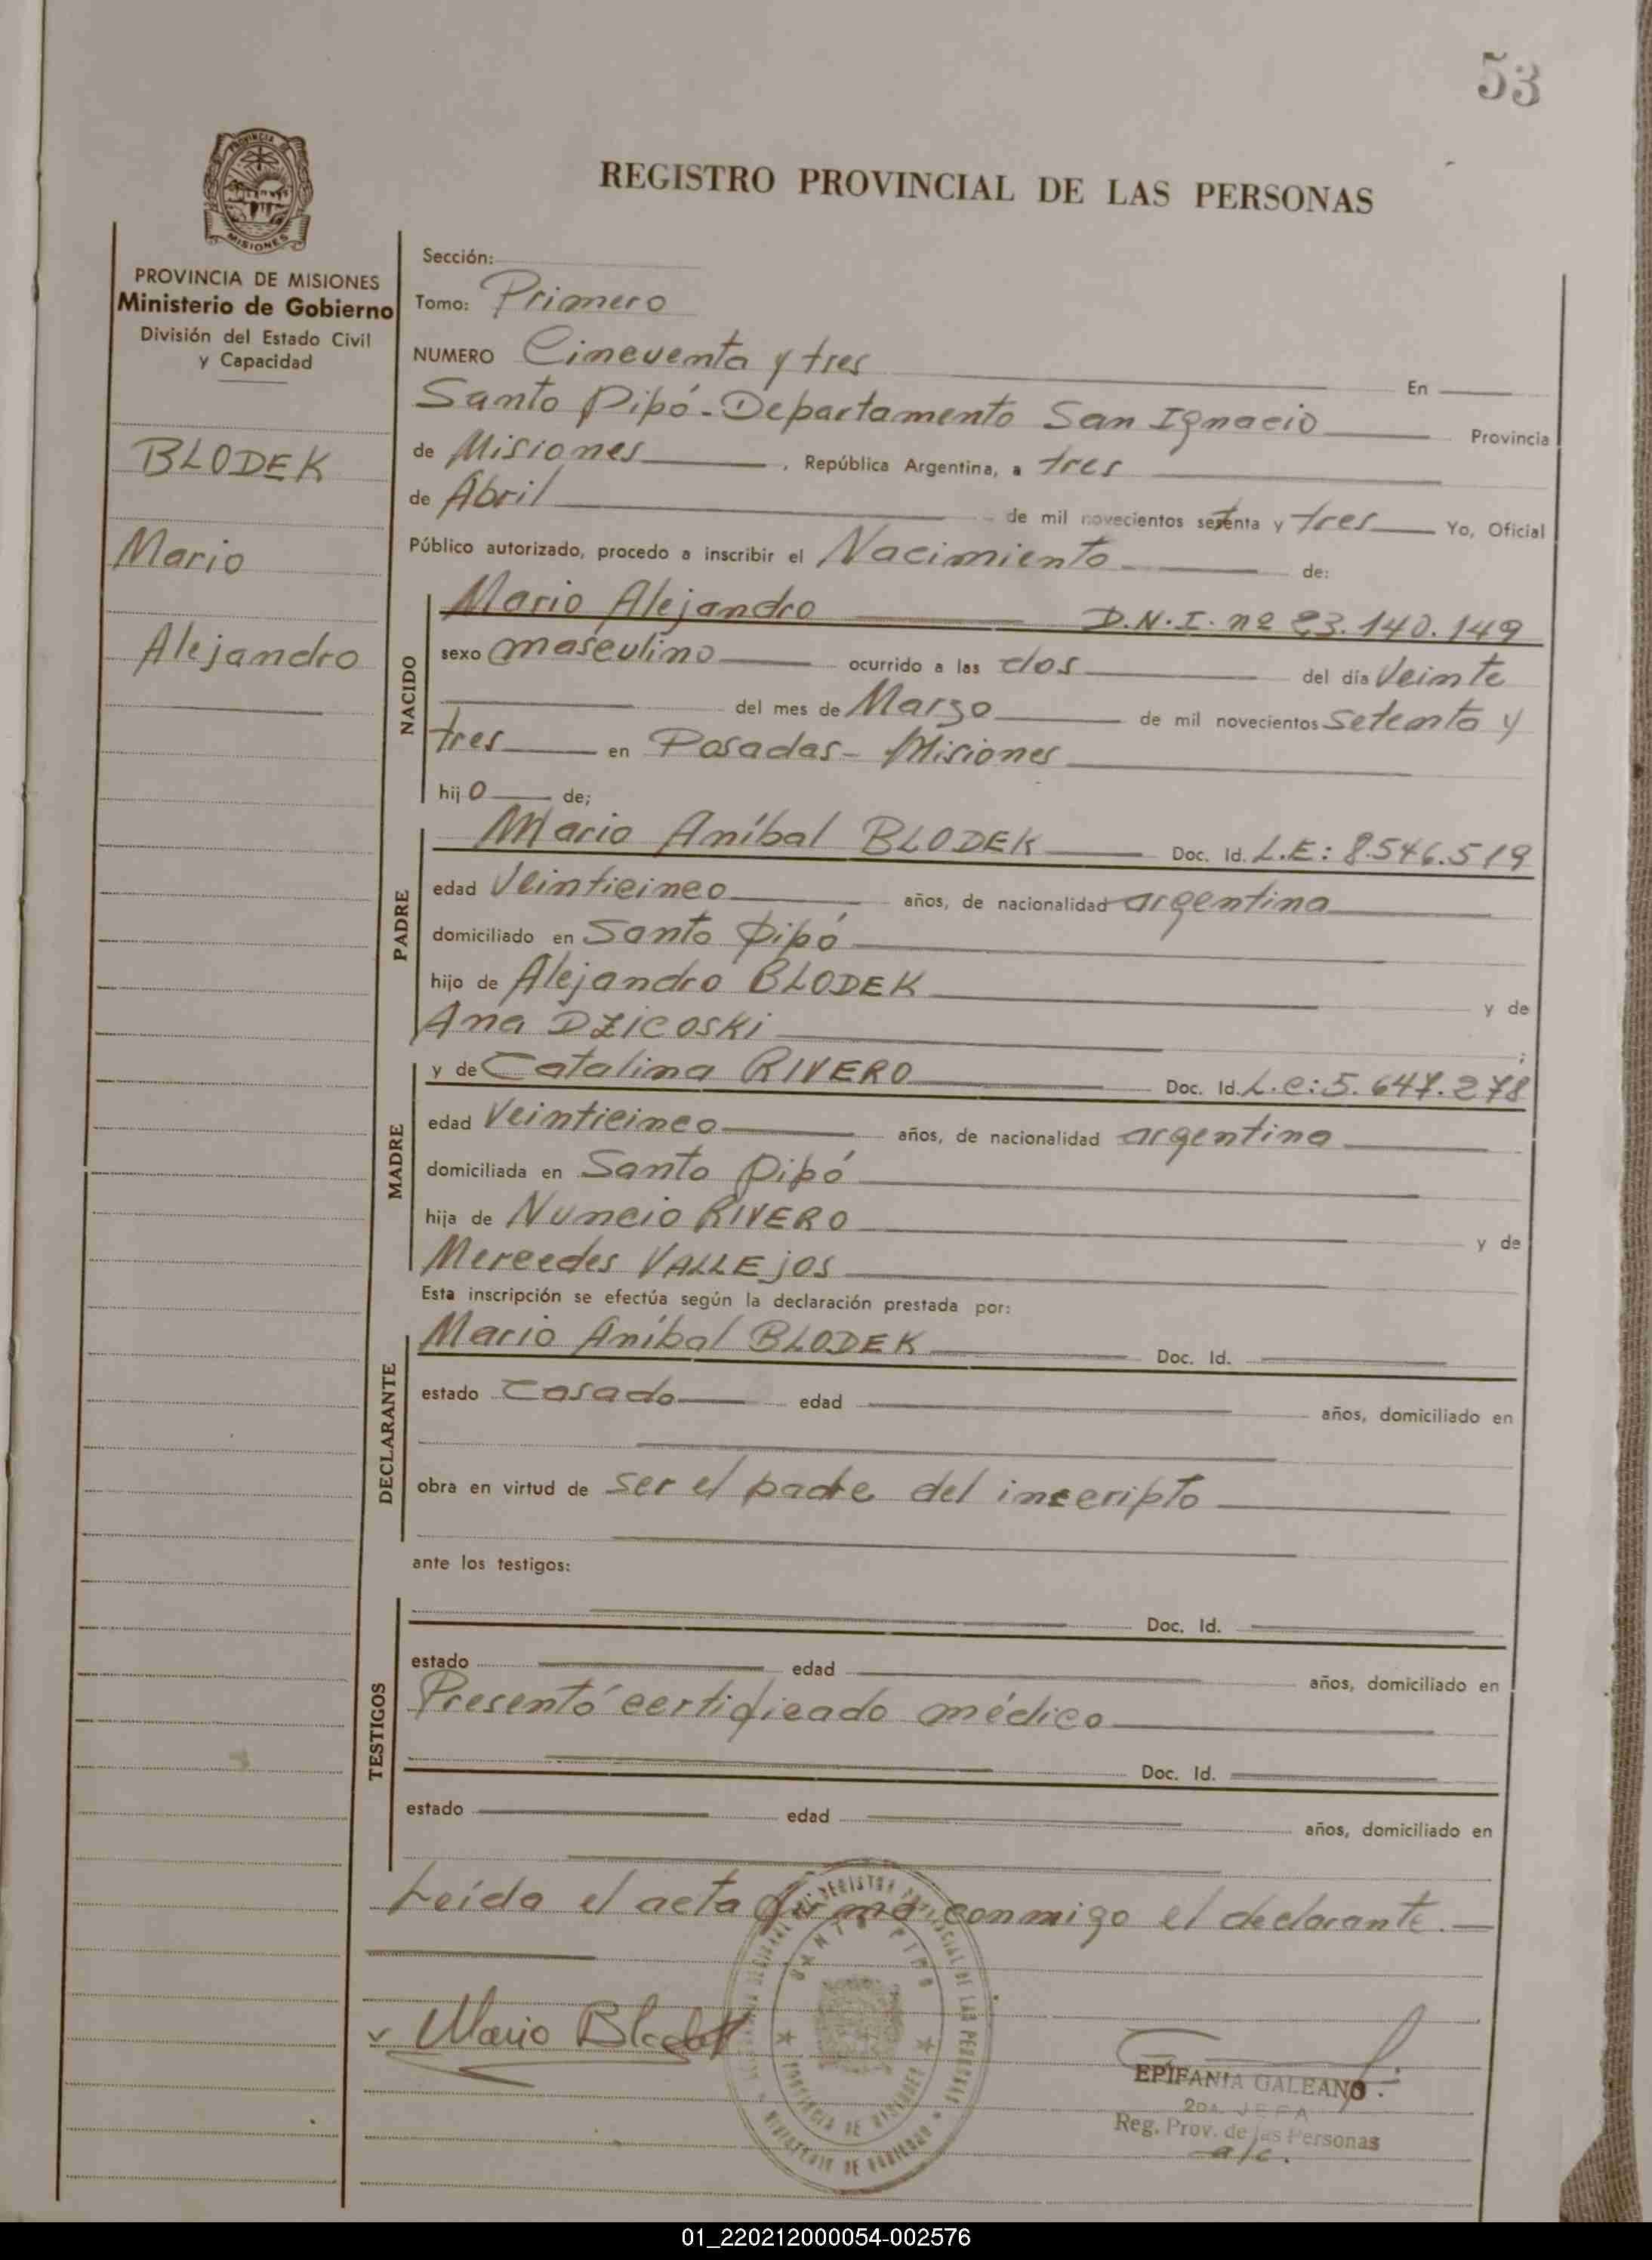 53
PROVINCIA DE
MISIONES
REGISTRO PROVINCIAL DE LAS PERSONAS
PROVINCIA DE MISIONES
Ministerio de Gobierno
División del Estado Civil
y Capacidad
BLODEK
Mario
Alejandro
Sección:
Tomo: Primero
NUMERO Cincuenta y tres En
Santo Pipó - Departamento San Ignacio Provincia
de Misiones, República Argentina, a tres
de Abril de mil novecientos setenta y tres Yo, Oficial
Público autorizado, procedo a inscribir el Nacimiento de:
NACIDO
Mario Alejandro D.N.I. nº 23.140.149
sexo masculino ocurrido a las dos del día Veinte
del mes de Marzo de mil novecientos setenta y
tres en Posadas - Misiones
hijo de;
PADRE
Mario Aníbal BLODEK Doc. Id. L.E: 8.546.519
edad Veinticinco años, de nacionalidad argentina
domiciliado en Santo Pipó
hijo de Alejandro BLODEK y de
Ana DZICOSKI ;
MADRE
y de Catalina RIVERO Doc. Id. L.C: 5.647.278
edad Veinticinco años, de nacionalidad argentina
domiciliada en Santo Pipó
hija de Nuncio RIVERO y de
Mercedes VALLEjOS
Esta inscripción se efectúa según la declaración prestada por:
DECLARANTE
Mario Aníbal BLODEK Doc. Id.
estado Casado edad años, domiciliado en
obra en virtud de ser el padre del inscripto
ante los testigos:
TESTIGOS
Doc. Id.
estado edad años, domiciliado en
Presentó certificado médico
Doc. Id.
estado edad años, domiciliado en
Leída el acta firma conmigo el declarante.
REGISTRO PROVINCIAL DE LAS PERSONAS
SANTO PIPO
PROVINCIA DE MISIONES
MINISTERIO DE GOBIERNO
Mario Blodek
EPIFANIA GALEANO
2DA. JEFA
Reg. Prov. de las Personas
a/c.
01_220212000054-002576